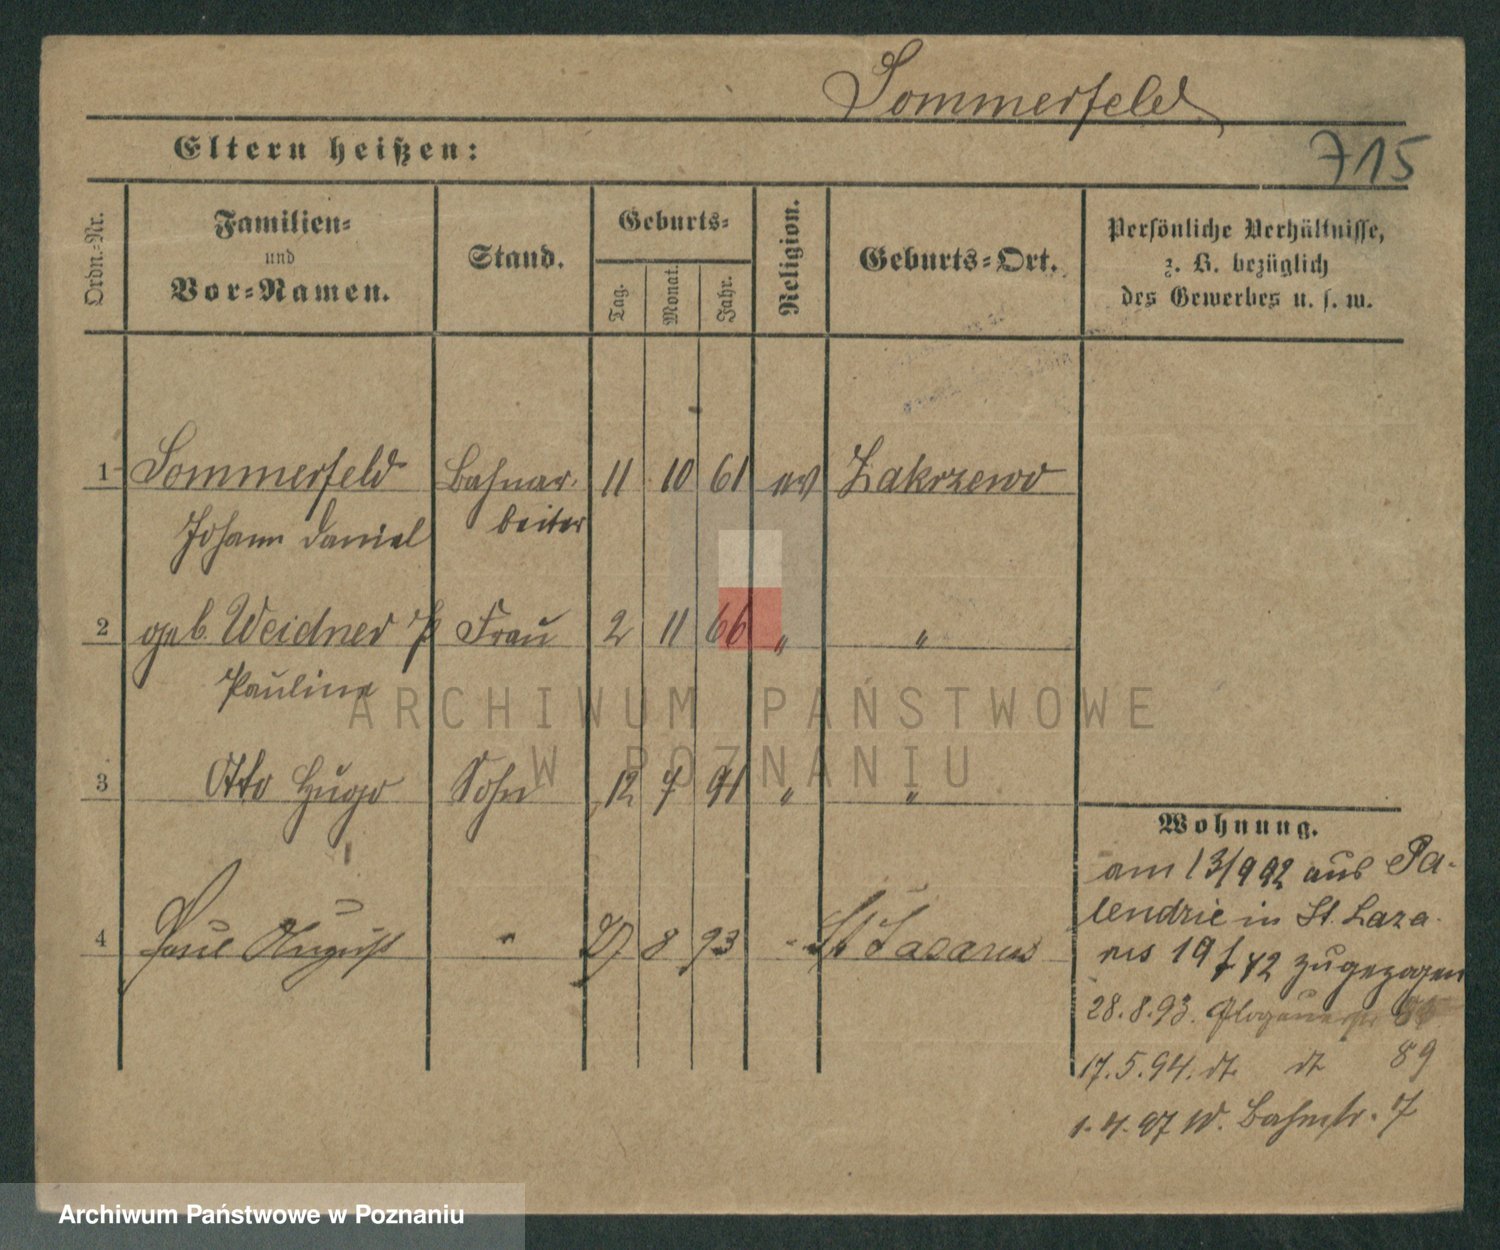 Sommerfeld
715
Eltern heißen:
Ordn.-Nr.
Familien-
und
Vor-Namen.
Stand.
Geburts-
Tag.
Monat.
Jahr.
Religion.
Geburts-Ort.
Persönliche Verhältnisse,
z. B. bezüglich
des Gewerbes u. s. w.
1 Sommerfeld Bahnar- 11 10 61 ev Zakrzewo
Johann Daniel beiter
2 geb. Weidner Frau 2 11 66 " "
Pauline
3 Otto Hugo Sohn 12 7 91 " "
4 Paul August " 8 93 " St Lazarus
Wohnung.
am 13/9 92 aus Pa-
lendzie in St. Laza-
rus 19 zugezogen
28.8.93. Glogauerstr
17.5.94. dt dt 89
1.4.97 W. Bahnstr. 7
ARCHIWUM PAŃSTWOWE
W POZNANIU
Archiwum Państwowe w Poznaniu